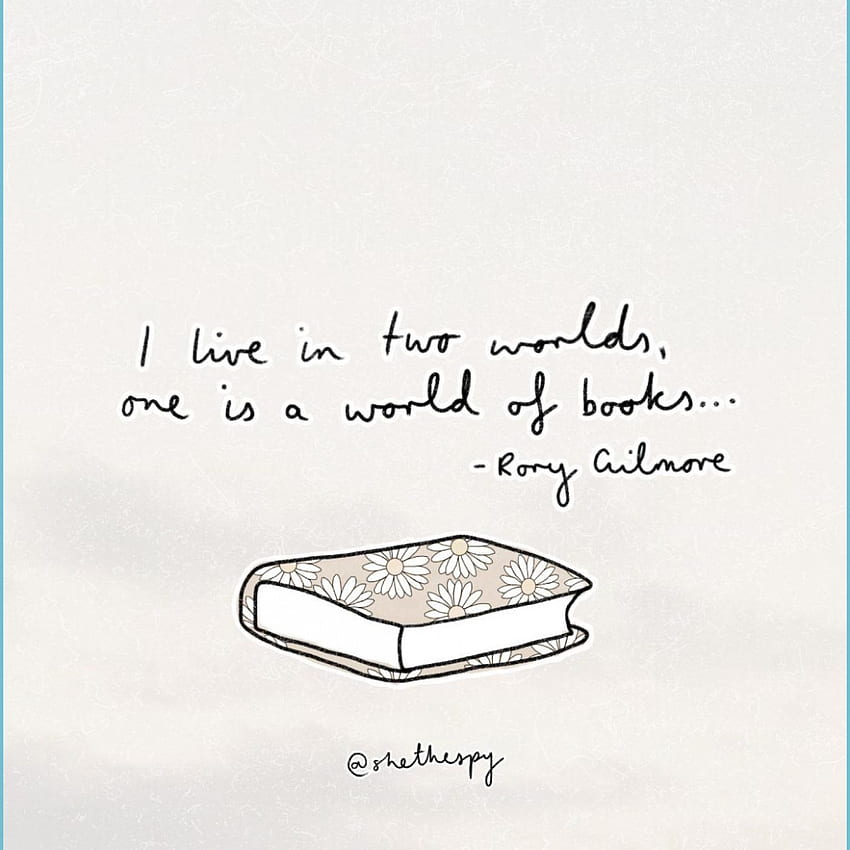 I live in two worlds,
one is a world of books...
-Rory Gilmore
@shethespy